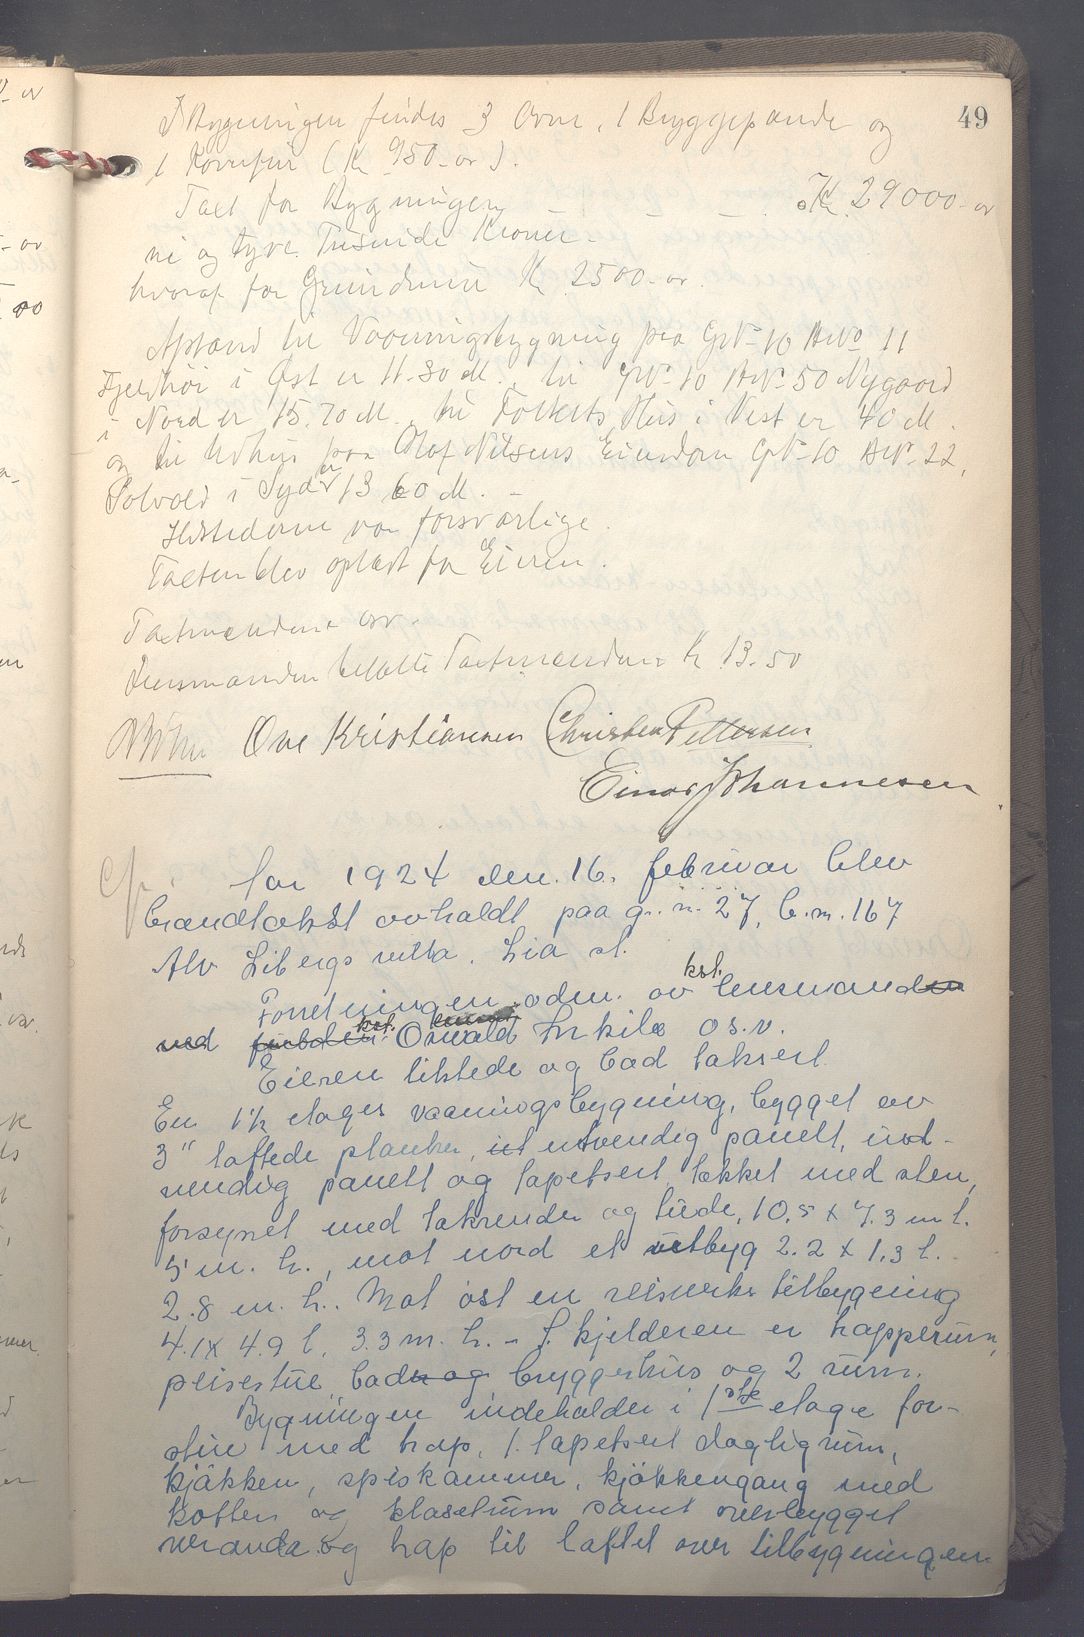 49
I Bygningen findes 3 Ovne, 1 Bryggepande og
1 Komfur (Kr 950.- ør).
Taxt for Bygningen – – – . Kr. 29000.- ør
ni og tyve Tusinde Kroner.
hvoraf for Grundmur Kr 2500.- ør.
Afstand til Vaaningsbygning paa GNo 10 BNo 11
Fjeldhøi i Øst er 11.30 M., til GNo 10 BNo 50 Nygaard
i Nord er 15.70 M, til Folkets Hus i Vest er 40 M.
og til Udhus paa Olaf Nilsens Eiendom GNo 10 BNo 22,
Solvold i Syd er 13.60 M. –
Ildstederne var forsvarlige.
Taxten blev oplæst for Eieren.
Taxtmændene
Lensmanden Taxtmændene Kr. 13.50
Ove Kristiansen Christen Pettersen
Einar Johannesen
Aar 1924 den 16. februar blev
brandtakst avholdt paa gr.n. 27, b.n. 167
Alv Libergs villa, Lia st.
Forretningen adm. av kst. lensmanden
ved kst. Osvald o.s.v.
Eieren tilstede og bad taksert.
En 1½ etages vaaningsbygning, bygget av
3" laftede planker, ut utvendig panelt, ind-
vendig panelt og tapetsert, tækket med sten,
forsynet med takrender og tüde, 10.5 x 7.3 m l.
5 m. h., mot nord et utbyg 2.2 x 1.3 l.
2.8 m. h.. Mot øst en reisverks tilbygning
4.1 x 4.9 l, 3.3 m. h. – I kjelderen er trapperum,
peisestue, baden og bryggerhus og 2 rum.
Bygningen indeholder i 1ste etage for-
stue med trap, 1 tapetsert dagligrum,
kjøkken, spiskammer, kjøkkengang med
kott og klosetrum samt overbygget
veranda og trap til loftet over tilbygningen